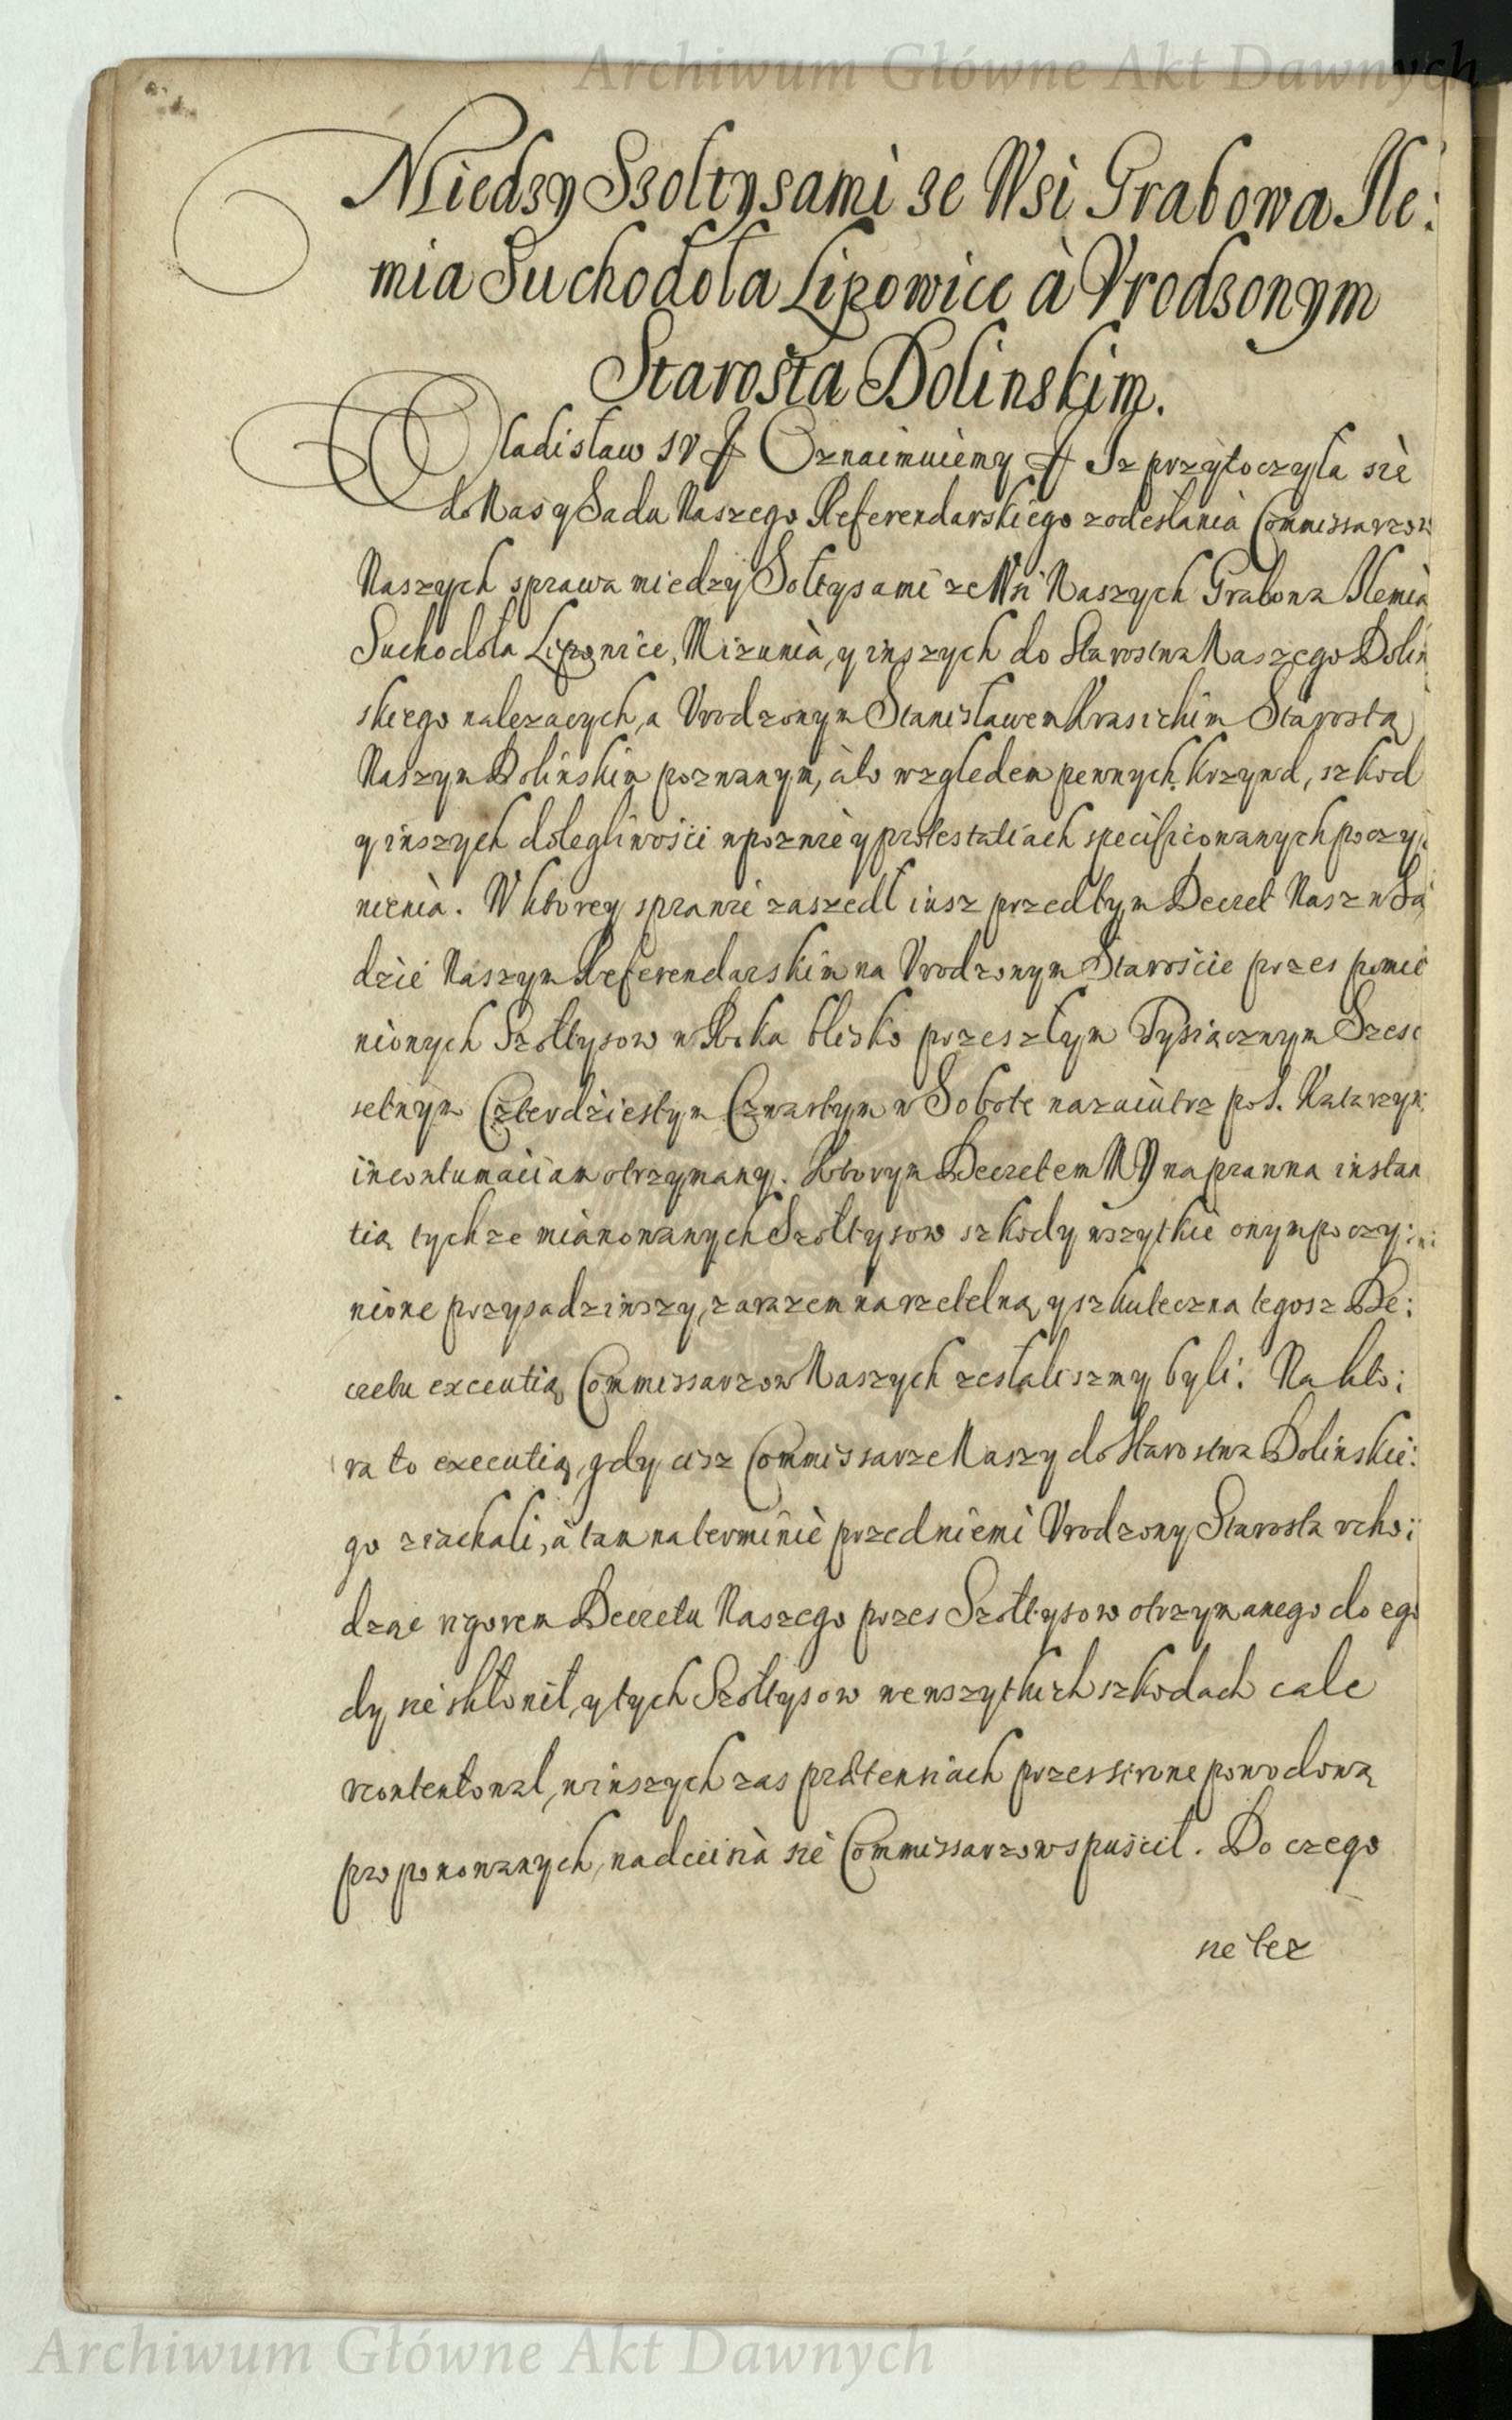 Archiwum Główne Akt Dawnych
Miedzy Szoltysami ze Wsi Grabowa Ile:
mia Suchodoła Lipowice à Vrodzonym
Starosta Dolinskim.
Wladisław IV Oznaimuiemy Iz przytoczyla sie
do Nas y Sadu Naszego Referendarskiego z odesłania Commissarzow
Naszych sprawa miedzy Sołtysami ze Wsi Naszych Grabowa Ilemia
Suchodoła Lipowice, Mizunia, y inszych do Starostwa Naszego Dolin
skiego nalezacych, a Vrodzonym Stanisławem Krasickim Starostą
Naszym Dolinskim pozwanym, à to wzgledem pewnych Krzywd, szkod
y inszych dolegliwosci w pozwie y protestatiach specificowanych poczy:
nienia. W ktorey sprawie zaszedł iusz przedtym Decret Nasz w Są
dzie Naszym Referendarskim na Vrodzonym Staroscie przes pomie
nionych Szołtysow w Roku blisko przeszłym Tysiącznym Szesc
setnym Czterdziestym Czwartym w Sobote nazaiutrz po S. Katarzyn:
in contumaciam otrzymany. Ktorym Decretem MY na prawna instan
tią tychze mianowanych Szołtysow szkody wszytkie onym poczy:
nione przysadziwszy, zarazem na rzetelną y szkuteczna tegosz De:
cretu executią Commissarzow Naszych zesłalismy byli. Na kto:
ra to executią gdy cisz Commissarze Naszy do Starostwa Dolinskie:
go ziachali, à tam na terminie przed niemi Vrodzony Starosta vcho:
dząc rigorem Decretu Naszego przes Szołtysow otrzymanego do zgo
dy sie skłonił, y tych Szołtysow we wszytkich szkodach cale
vcontentował, w inszych zas praetensiach przes strone powodową
proponowanych, na decisią sie Commissarzow spuscił. Do czego
sie tez
Archiwum Główne Akt Dawnych